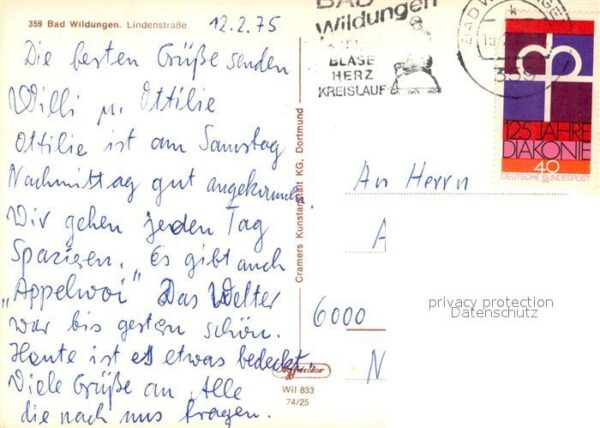 359 Bad Wildungen. Lindenstraße
12.2.75
Die besten Grüße senden
Willi u. Ottilie
Ottilie ist am Samstag
Nachmittag gut angekommen.
Wir gehen jeden Tag
Spazieren. Es gibt auch
„Appelwoi" Das Wetter
war bis gestern schön.
Heute ist es etwas bedeckt.
Viele Grüße an Alle
die nach uns fragen.
Cramers Kunstanstalt KG, Dortmund
Wil 833
74/25
BAD
Wildungen
BLASE
HERZ
KREISLAUF
BAD WILDUNGEN
359
125 JAHRE
DIAKONIE
40
DEUTSCHE BUNDESPOST
An Herrn
A
6000
N
privacy protection
Datenschutz